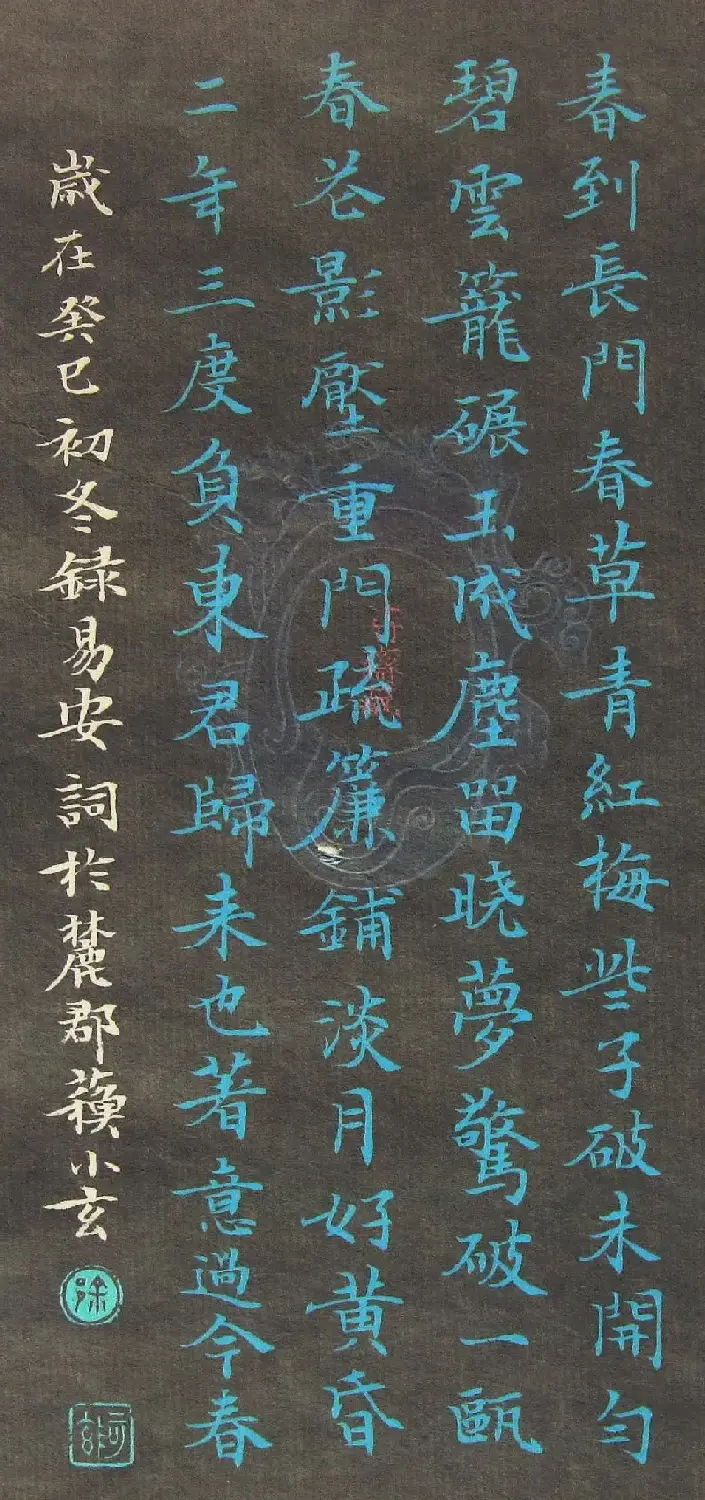 春到長門春草青紅梅些子破未開勻
碧雲籠碾玉成塵留晓夢驚破一甌
春花影壓重門疏簾鋪淡月好黄昏
二年三度負東君歸来也著意過今春
歲在癸巳初冬録易安詞於麓郡蘋小玄